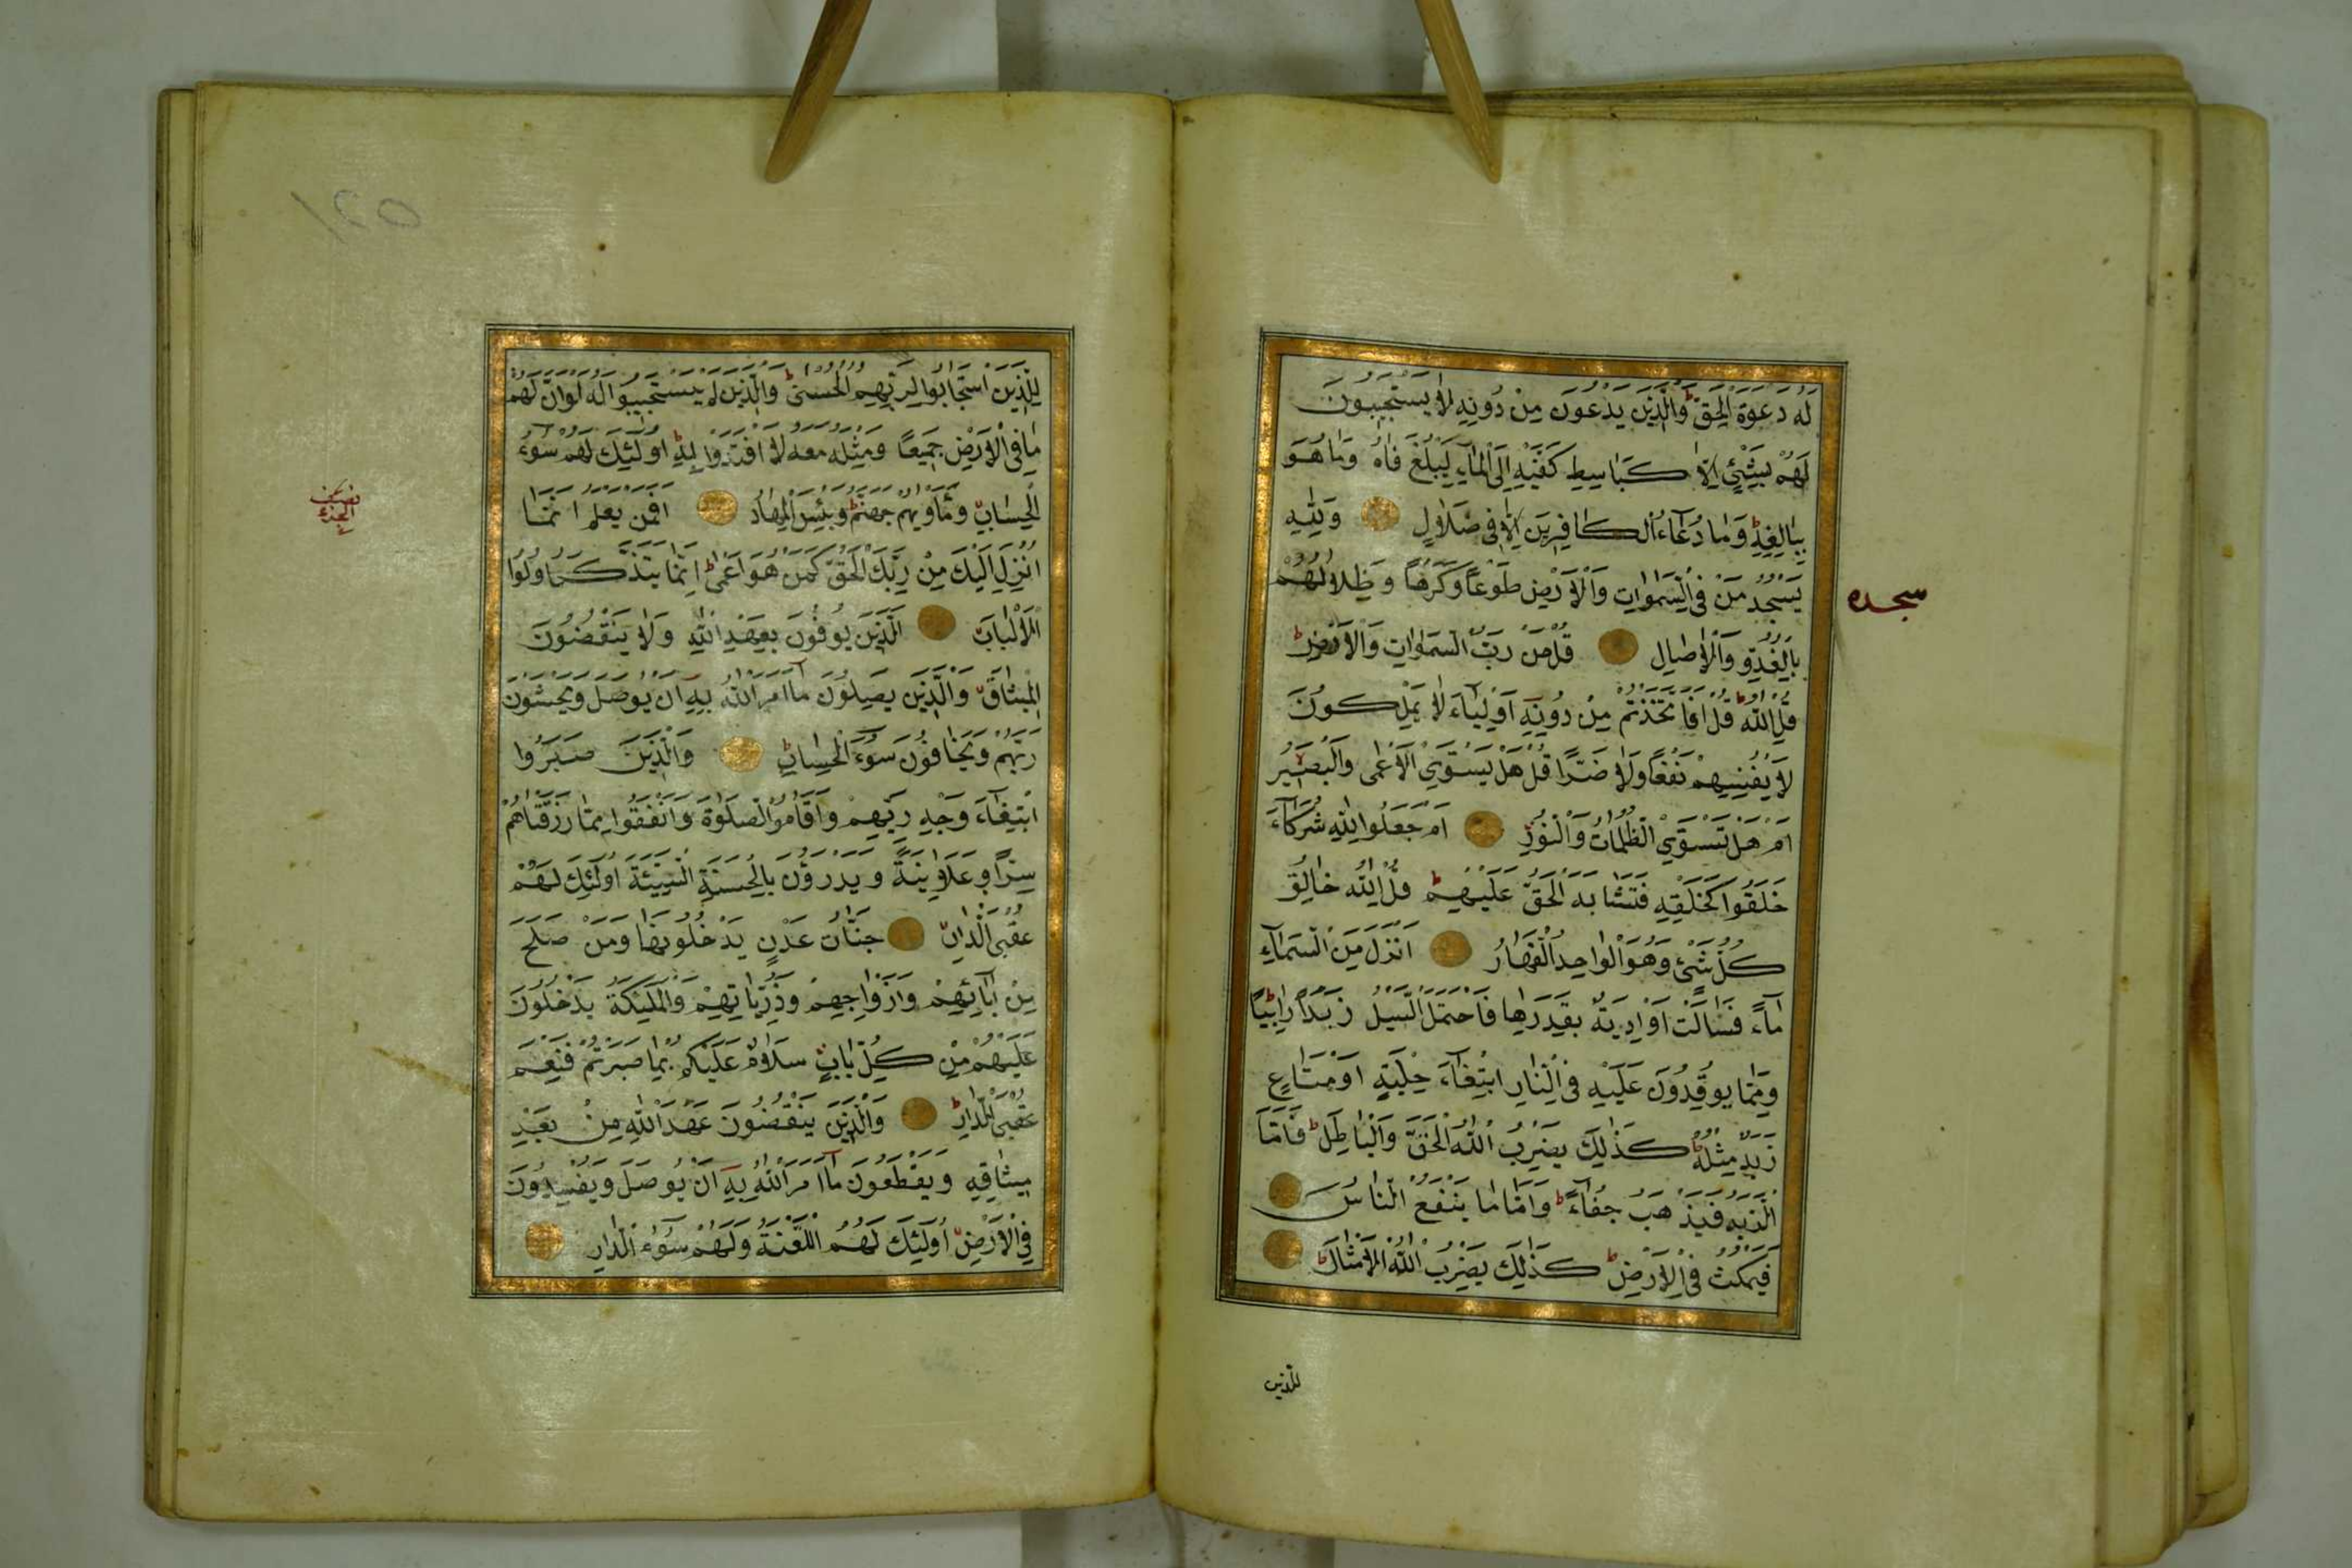 لَهُ دَعْوَةُ الْحَقِّ ط وَالَّذِينَ يَدْعُونَ مِنْ دُونِهِ لَا يَسْتَجِيبُونَ
لَهُمْ بِشَيْئٍ اِلَّا كَبَاسِطِ كَفَّيْهِ اِلَى الْمَاءِ لِيَبْلُغَ فَاهُ وَمَا هُوَ
بِبَالِغِهِ ط وَمَا دُعَاءُ الْكَافِرِينَ اِلَّا فِى ضَلَالٍ وَلِلّٰهِ
يَسْجُدُ مَنْ فِى السَّمٰوَاتِ وَالْاَرْضِ طَوْعًا وَكَرْهًا وَظِلَالُهُمْ
سجده
بِالْغُدُوِّ وَالْاٰصَالِ قُلْ مَنْ رَبُّ السَّمٰوَاتِ وَالْاَرْضِ ط
قُلِ اللّٰهُ ط قُلْ اَفَاتَّخَذْتُمْ مِنْ دُونِهِ اَوْلِيَاءَ لَا يَمْلِكُونَ
لِاَنْفُسِهِمْ نَفْعًا وَلَا ضَرًّا قُلْ هَلْ يَسْتَوِي الْاَعْمٰى وَالْبَصِيرُ
اَمْ هَلْ تَسْتَوِي الظُّلُمَاتُ وَالنُّورُ اَمْ جَعَلُوا لِلّٰهِ شُرَكَاءَ
خَلَقُوا كَخَلْقِهِ فَتَشَابَهَ الْحَقُّ عَلَيْهِمْ ط قُلِ اللّٰهُ خَالِقُ
كُلِّ شَيْءٍ وَهُوَ الْوَاحِدُ الْقَهَّارُ اَنْزَلَ مِنَ السَّمَاءِ
مَاءً فَسَالَتْ اَوْدِيَةٌ بِقَدَرِهَا فَاحْتَمَلَ السَّيْلُ زَبَدًا رَابِيًا ط
وَمِمَّا يُوقِدُونَ عَلَيْهِ فِى النَّارِ ابْتِغَاءَ حِلْيَةٍ اَوْ مَتَاعٍ
زَبَدٌ مِثْلُهُ ط كَذٰلِكَ يَضْرِبُ اللّٰهُ الْحَقَّ وَالْبَاطِلَ ط فَاَمَّا
الزَّبَدُ فَيَذْهَبُ جُفَاءً ط وَاَمَّا مَا يَنْفَعُ النَّاسَ
فَيَمْكُثُ فِى الْاَرْضِ ط كَذٰلِكَ يَضْرِبُ اللّٰهُ الْاَمْثَالَ ط
للذين
١٢٥
لِلَّذِينَ اسْتَجَابُوا لِرَبِّهِمُ الْحُسْنٰى ط وَالَّذِينَ لَمْ يَسْتَجِيبُوا لَهُ لَوْ اَنَّ لَهُمْ
مَا فِى الْاَرْضِ جَمِيعًا وَمِثْلَهُ مَعَهُ لَافْتَدَوْا بِهِ ط اُولٰئِكَ لَهُمْ سُوءُ
الْحِسَابِ وَمَاْوٰيهُمْ جَهَنَّمُ ط وَبِئْسَ الْمِهَادُ اَفَمَنْ يَعْلَمُ اَنَّمَا
نصف
الجزء
اُنْزِلَ اِلَيْكَ مِنْ رَبِّكَ الْحَقُّ كَمَنْ هُوَ اَعْمٰى ط اِنَّمَا يَتَذَكَّرُ اُولُوا
الْاَلْبَابِ اَلَّذِينَ يُوفُونَ بِعَهْدِ اللّٰهِ وَلَا يَنْقُضُونَ
الْمِيثَاقَ وَالَّذِينَ يَصِلُونَ مَا اَمَرَ اللّٰهُ بِهِ اَنْ يُوصَلَ وَيَخْشَوْنَ
رَبَّهُمْ وَيَخَافُونَ سُوءَ الْحِسَابِ ط وَالَّذِينَ صَبَرُوا
ابْتِغَاءَ وَجْهِ رَبِّهِمْ وَاَقَامُوا الصَّلٰوةَ وَاَنْفَقُوا مِمَّا رَزَقْنَاهُمْ
سِرًّا وَعَلَانِيَةً وَيَدْرَؤُنَ بِالْحَسَنَةِ السَّيِّئَةَ اُولٰئِكَ لَهُمْ
عُقْبَى الدَّارِ جَنَّاتُ عَدْنٍ يَدْخُلُونَهَا وَمَنْ صَلَحَ
مِنْ اٰبَائِهِمْ وَاَزْوَاجِهِمْ وَذُرِّيَّاتِهِمْ وَالْمَلٰئِكَةُ يَدْخُلُونَ
عَلَيْهِمْ مِنْ كُلِّ بَابٍ سَلَامٌ عَلَيْكُمْ بِمَا صَبَرْتُمْ فَنِعْمَ
عُقْبَى الدَّارِ ط وَالَّذِينَ يَنْقُضُونَ عَهْدَ اللّٰهِ مِنْ بَعْدِ
مِيثَاقِهِ وَيَقْطَعُونَ مَا اَمَرَ اللّٰهُ بِهِ اَنْ يُوصَلَ وَيُفْسِدُونَ
فِى الْاَرْضِ اُولٰئِكَ لَهُمُ اللَّعْنَةُ وَلَهُمْ سُوءُ الدَّارِ